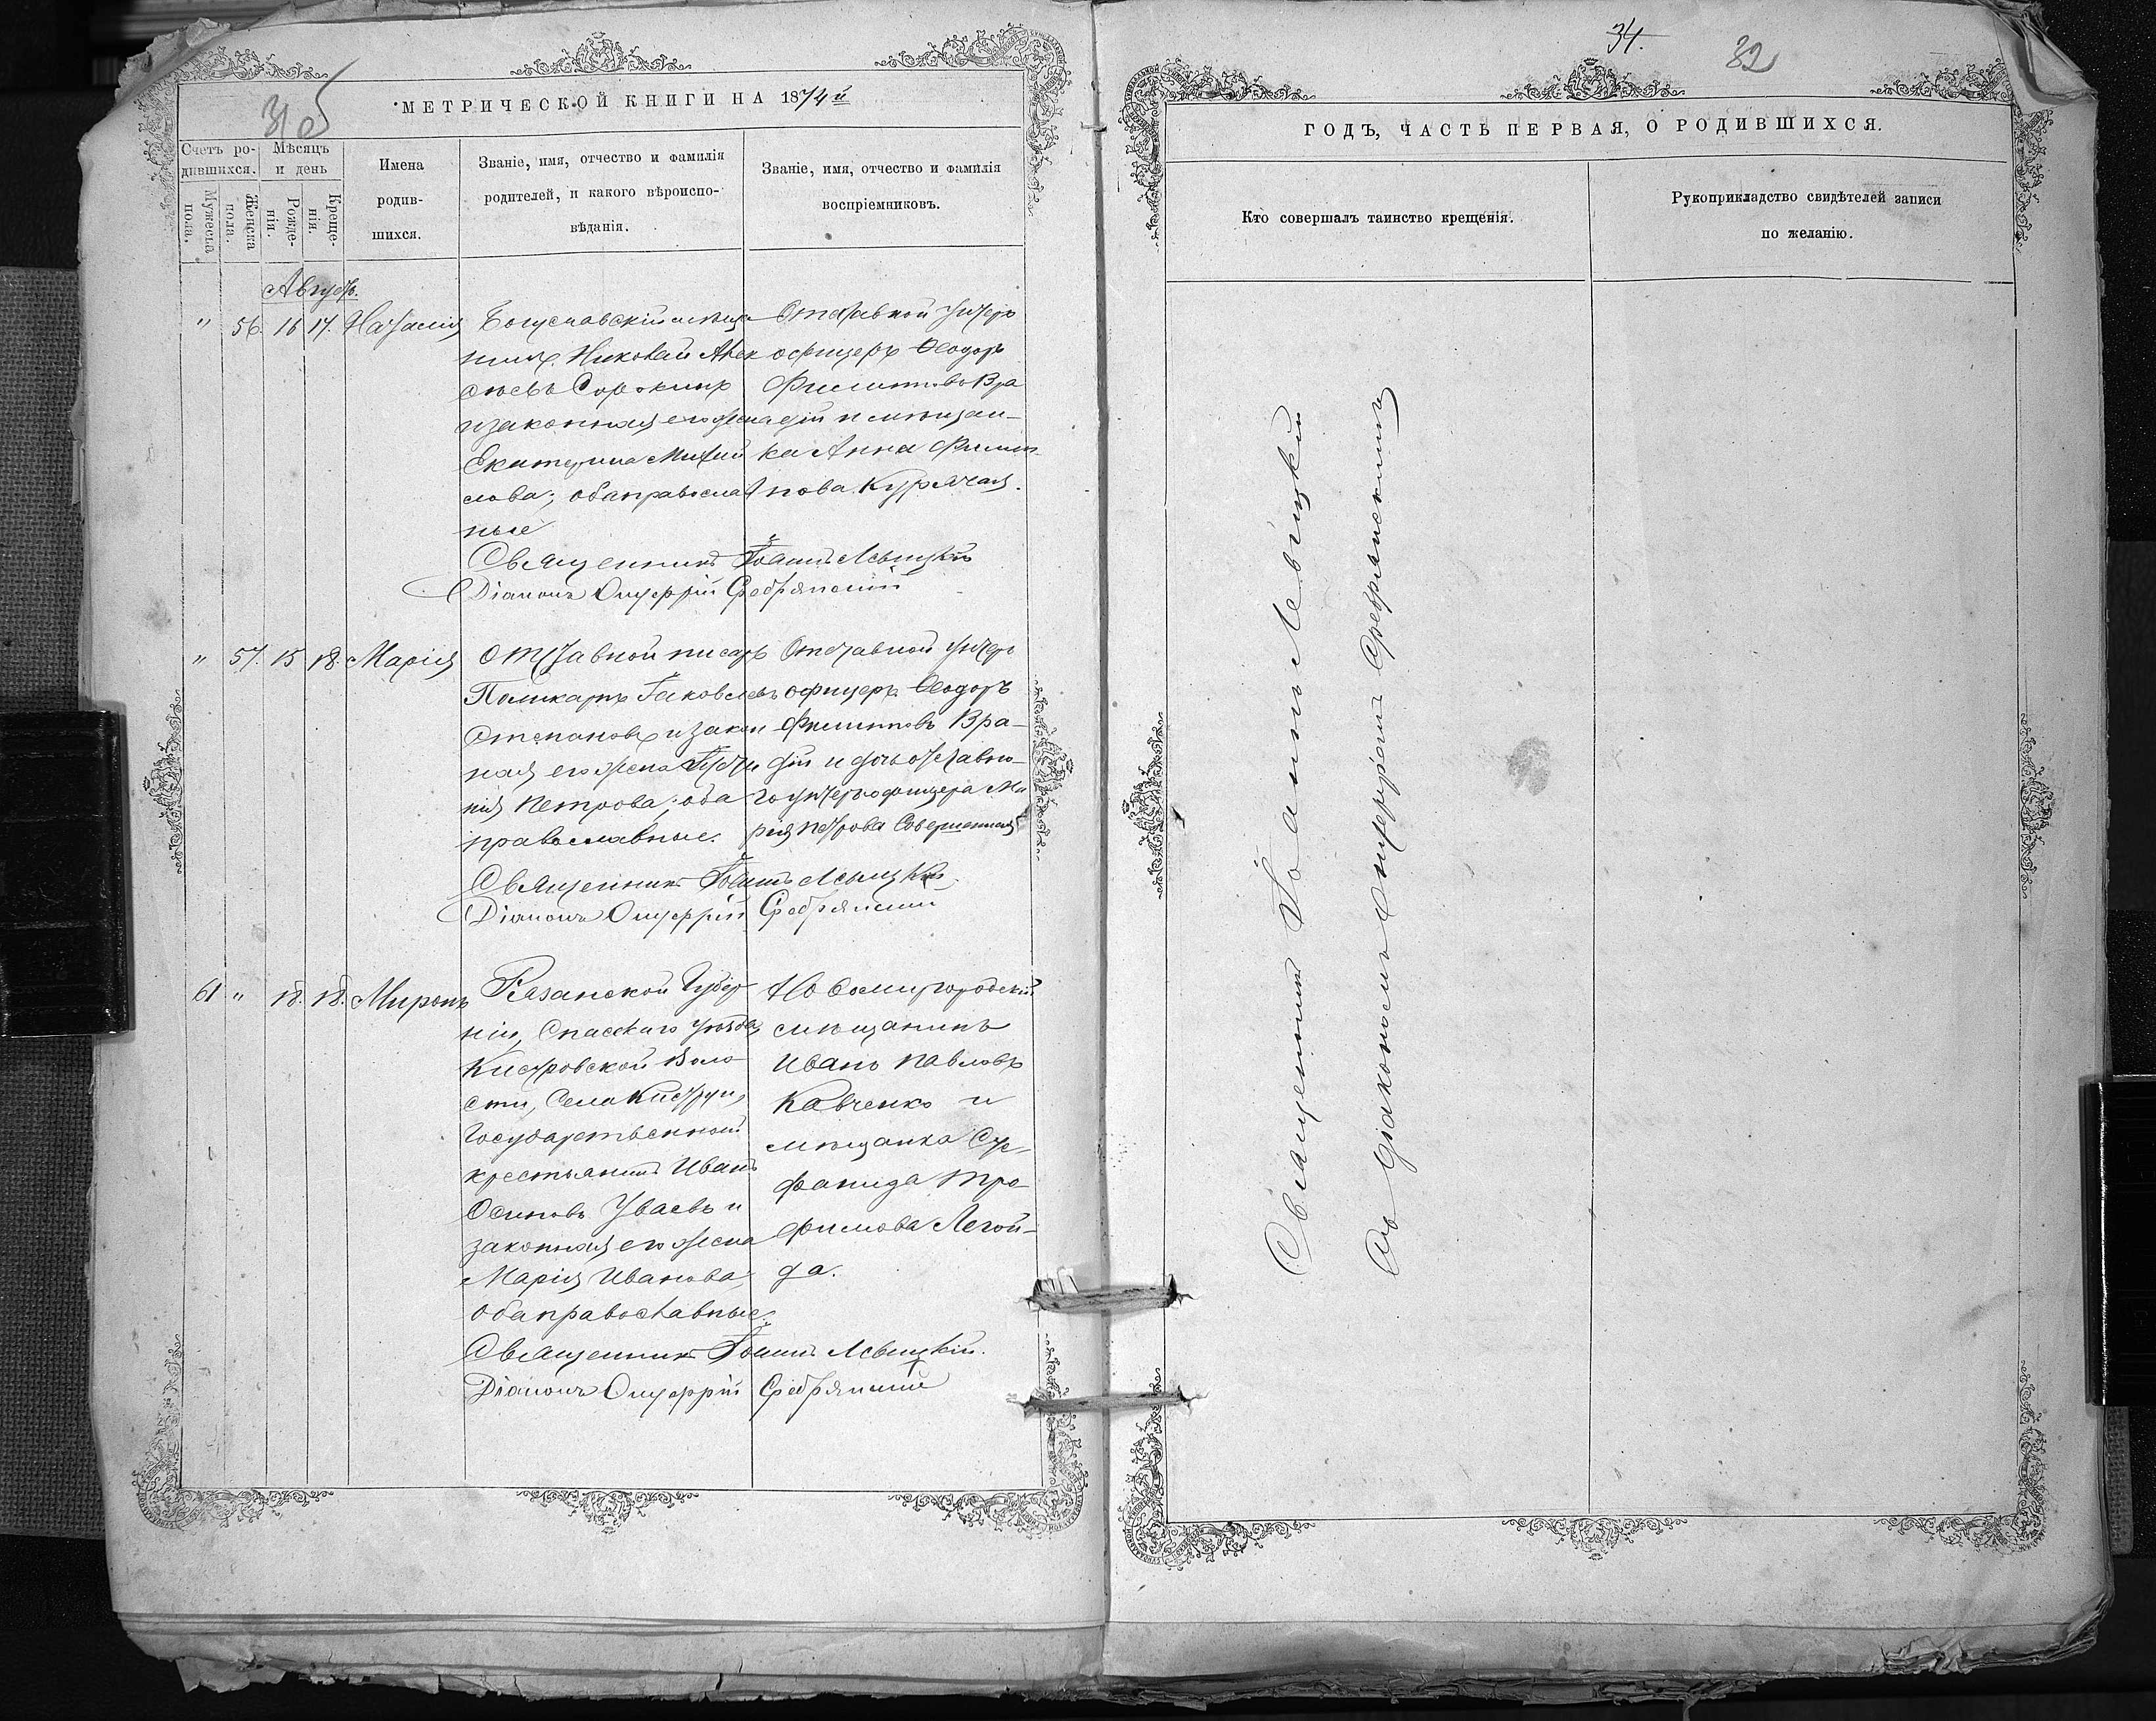 МЕТРИЧЕСКОЙ КНИГИ НА 1874й
Счетъ ро-
дившихся.
Мужеска
пола.
Женска
пола.
Мѣсяцъ
и день
Рожде-
нія.
Креще-
нія.
Имена
родив-
шихся.
Званіе, имя, отчество и фамилія
родителей, и какого вѣроиспо-
вѣданія.
Званіе, имя, отчество и фамилія
воспріемниковъ.
Августъ.
" 56. 16 17. Наталія
Богуславскій мѣща
нинъ Николай Алек
сѣевъ Сорокинъ
и законная его жена
Екатерина Михай
лова; оба православ
ные
Отставной унтеръ
офицеръ Ѳеодоръ
Филиповъ Вра
дій и мѣщан-
ка Анна Филип
пова Курячая.
Священникъ Іоаннъ Левицкій
Діаконъ Онуфрій Сребрянскій
" 57. 15 18. Марія
Отставной писарь
Поликарпъ Іаковлевъ
Степановъ и закон
ная его жена
нія Петрова; оба
православные.
Отставной унтеръ
офицеръ Ѳеодоръ
Филиповъ Вра-
дій и дочь отставно-
го унтеръ офицера Ма
рія Петрова
Священникъ Іоаннъ Левицкій.
Діаконъ Онуфрій Сребрянскій
61 " 18. 18. Миронъ
Рязанской Губер
ніи, Спасскаго уѣзда,
Кистровской Воло
сти, Села Кистри,
Государственный
крестьянинъ Иванъ
Осиповъ Уваевъ и
законная его жена
Марія Иванова,
оба православные.
Новомиргородскій
мѣщанинъ
Иванъ Павловъ
Кавченко и
мѣщанка
фанида Тро
фимова Легой-
да.
Священникъ Іоаннъ Левицкій.
Діаконъ Онуфрій Сребрянскій
34.
32
ГОДЪ, ЧАСТЬ ПЕРВАЯ, О РОДИВШИХСЯ.
Кто совершалъ таинство крещенія.
Рукоприкладство свидѣтелей записи
по желанію.
Священникъ Іоаннъ Левицкій
съ діакономъ Онуфріемъ Сребрянскимъ